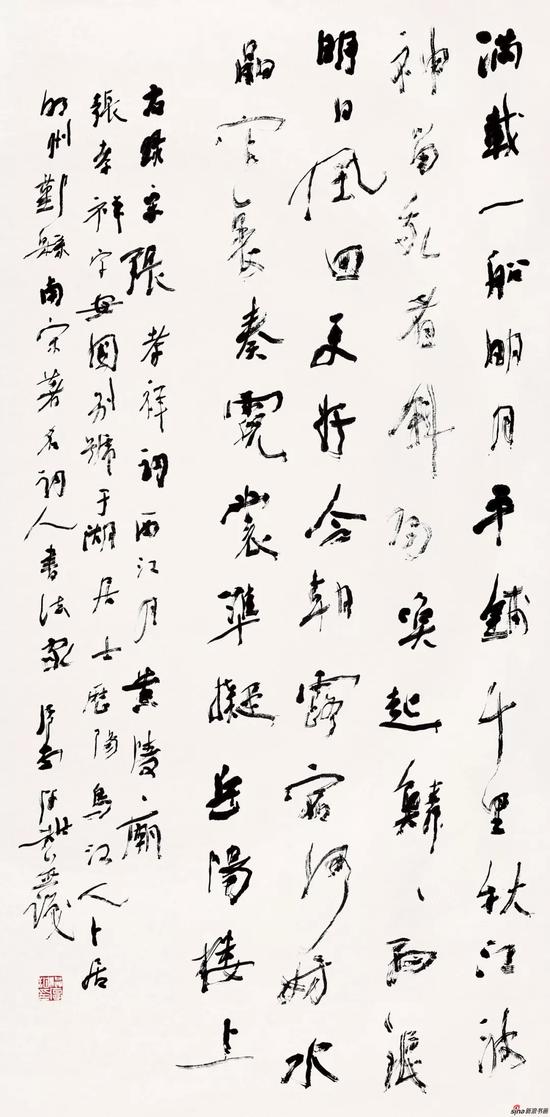 滿載一船明月平鋪千里秋江波
神留我看斜陽喚起鱗〻細浪
明日風回更好今朝露宿何妨水
晶宮裏奏霓裳準擬岳陽樓上
右錄宋張孝祥詞西江月黃陵廟
張孝祥字安國別號于湖居士歷陽烏江人卜居
明州鄞縣南宋著名詞人書法家
sina新浪书画